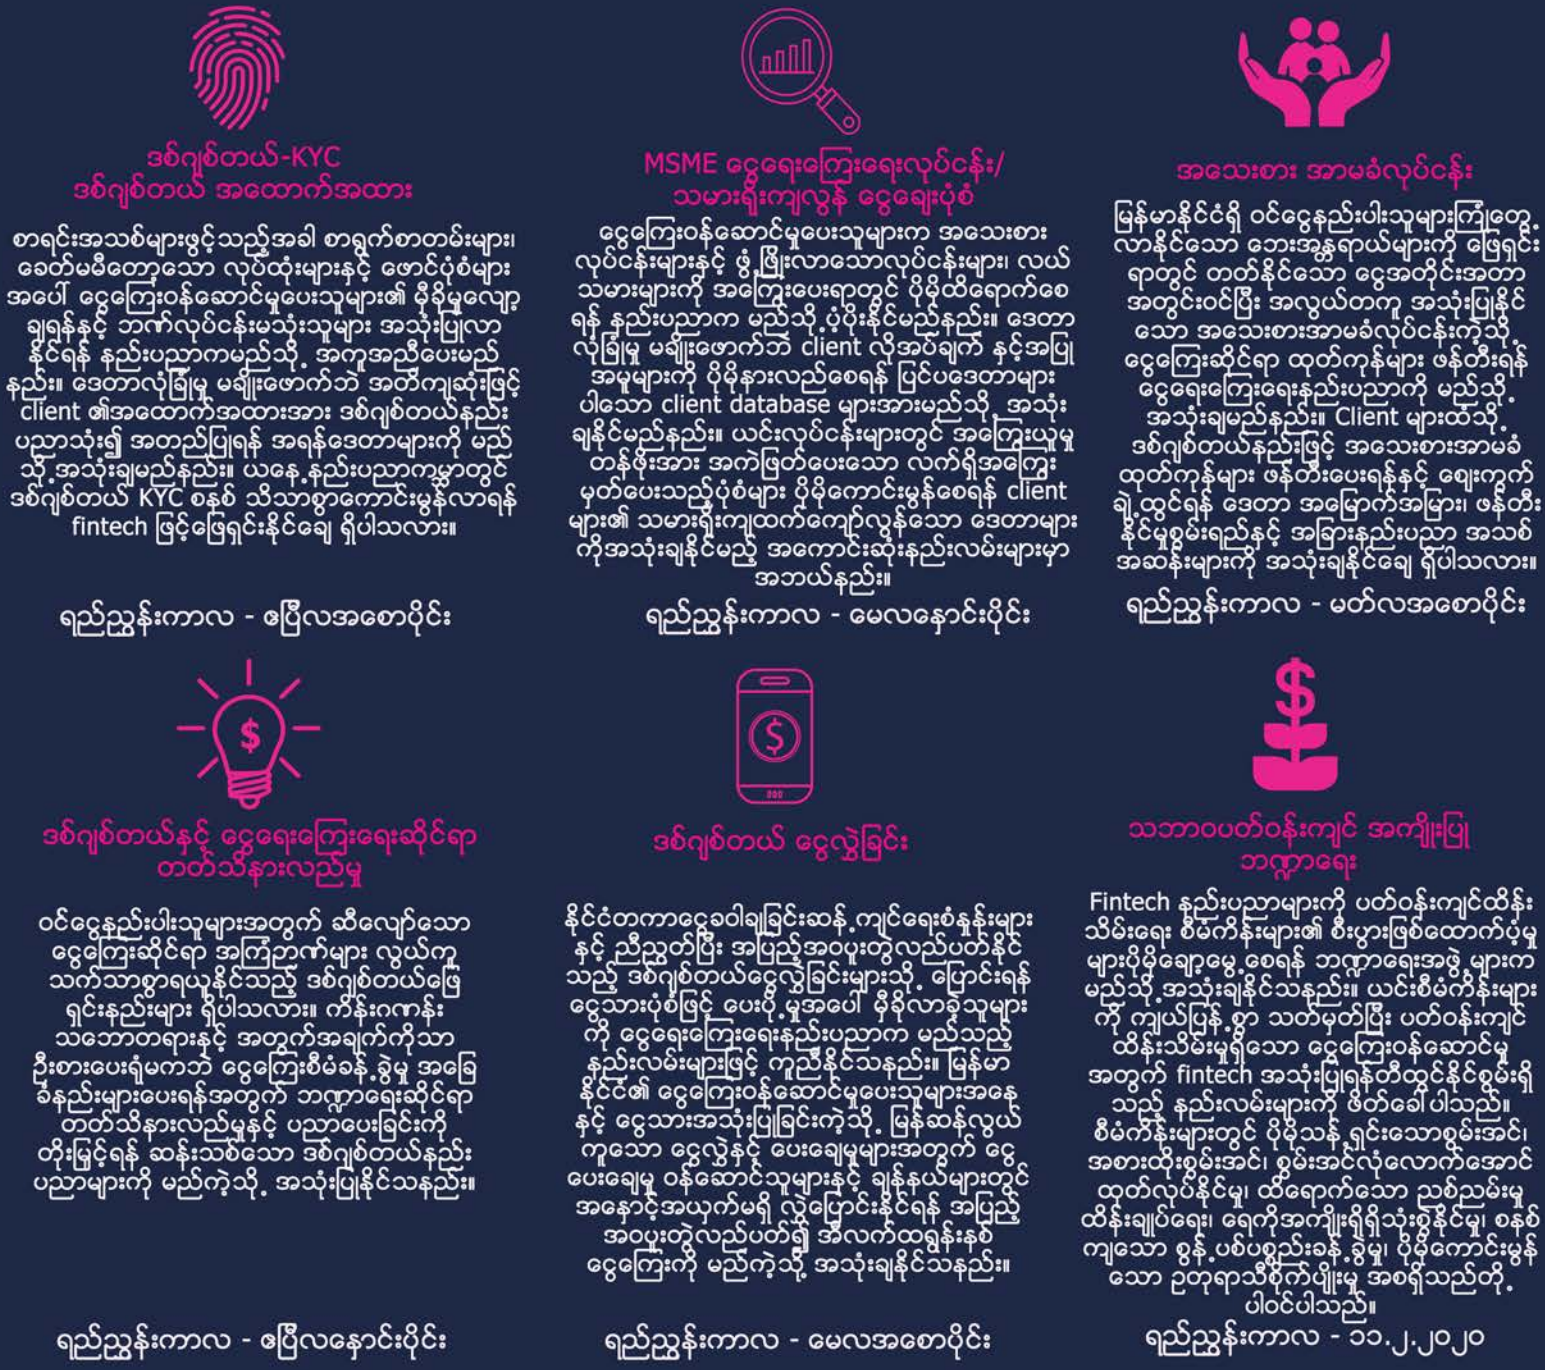 ဒစ်ဂျစ်တယ်-KYC
ဒစ်ဂျစ်တယ် အထောက်အထား
စာရင်းအသစ်များဖွင့်သည့်အခါ စာရွက်စာတမ်းများ၊
ခေတ်မမီတော့သော လုပ်ထုံးများနှင့် ဖောင်ပုံစံများ
အပေါ် ငွေကြေးဝန်ဆောင်မှုပေးသူများ၏ မှီခိုမှုလျော့
ချရန်နှင့် ဘဏ်လုပ်ငန်းမသုံးသူများ အသုံးပြုလာ
နိုင်ရန် နည်းပညာကမည်သို့ အကူအညီပေးမည်
နည်း။ ဒေတာလုံခြုံမှု မချိုးဖောက်ဘဲ အတိကျဆုံးဖြင့်
client ၏အထောက်အထားအား ဒစ်ဂျစ်တယ်နည်း
ပညာသုံး၍ အတည်ပြုရန် အရန်ဒေတာများကို မည်
သို့ အသုံးချမည်နည်း။ ယနေ့နည်းပညာကမ္ဘာတွင်
ဒစ်ဂျစ်တယ် KYC စနစ် သိသာစွာကောင်းမွန်လာရန်
fintech ဖြင့်ဖြေရှင်းနိုင်ချေ ရှိပါသလား။
ရည်ညွှန်းကာလ - ဧပြီလအစောပိုင်း
MSME ငွေရေးကြေးရေးလုပ်ငန်း/
သမားရိုးကျလွန် ငွေချေးပုံစံ
ငွေကြေးဝန်ဆောင်မှုပေးသူများက အသေးစား
လုပ်ငန်းများနှင့် ဖွံ့ဖြိုးလာသောလုပ်ငန်းများ၊ လယ်
သမားများကို အကြွေးပေးရာတွင် ပိုမိုထိရောက်စေ
ရန် နည်းပညာက မည်သို့ပံ့ပိုးနိုင်မည်နည်း။ ဒေတာ
လုံခြုံမှု မချိုးဖောက်ဘဲ client လိုအပ်ချက် နှင့်အပြု
အမူများကို ပိုမိုနားလည်စေရန် ပြင်ပဒေတာများ
ပါသော client database များအားမည်သို့ အသုံး
ချနိုင်မည်နည်း။ ယင်းလုပ်ငန်းများတွင် အကြွေးယူမှု
တန်ဖိုးအား အကဲဖြတ်ပေးသော လက်ရှိအကြွေး
မှတ်ပေးသည့်ပုံစံများ ပိုမိုကောင်းမွန်စေရန် client
များ၏ သမားရိုးကျထက်ကျော်လွန်သော ဒေတာများ
ကိုအသုံးချနိုင်မည့် အကောင်းဆုံးနည်းလမ်းများမှာ
အဘယ်နည်း။
ရည်ညွှန်းကာလ - မေလနှောင်းပိုင်း
အသေးစား အာမခံလုပ်ငန်း
မြန်မာနိုင်ငံရှိ ဝင်ငွေနည်းပါးသူများကြုံတွေ့
လာနိုင်သော ဘေးအန္တရာယ်များကို ဖြေရှင်း
ရာတွင် တတ်နိုင်သော ငွေအတိုင်းအတာ
အတွင်းဝင်ပြီး အလွယ်တကူ အသုံးပြုနိုင်
သော အသေးစားအာမခံလုပ်ငန်းကဲ့သို့
ငွေကြေးဆိုင်ရာ ထုတ်ကုန်များ ဖန်တီးရန်
ငွေရေးကြေးရေးနည်းပညာကို မည်သို့
အသုံးချမည်နည်း။ Client များထံသို့
ဒစ်ဂျစ်တယ်နည်းဖြင့် အသေးစားအာမခံ
ထုတ်ကုန်များ ဖန်တီးပေးရန်နှင့် ဈေးကွက်
ချဲ့ထွင်ရန် ဒေတာ အမြောက်အမြား၊ ဖန်တီး
နိုင်မှုစွမ်းရည်နှင့် အခြားနည်းပညာ အသစ်
အဆန်းများကို အသုံးချနိုင်ချေ ရှိပါသလား။
ရည်ညွှန်းကာလ - မတ်လအစောပိုင်း
ဒစ်ဂျစ်တယ်နှင့် ငွေရေးကြေးရေးဆိုင်ရာ
တတ်သိနားလည်မှု
ဝင်ငွေနည်းပါးသူများအတွက် ဆီလျော်သော
ငွေကြေးဆိုင်ရာ အကြံဉာဏ်များ လွယ်ကူ
သက်သာစွာရယူနိုင်သည့် ဒစ်ဂျစ်တယ်ဖြေ
ရှင်းနည်းများ ရှိပါသလား။ ကိန်းဂဏန်း
သဘောတရားနှင့် အတွက်အချက်ကိုသာ
ဦးစားပေးရုံမကဘဲ ငွေကြေးစီမံခန့်ခွဲမှု အခြေ
ခံနည်းများပေးရန်အတွက် ဘဏ္ဍာရေးဆိုင်ရာ
တတ်သိနားလည်မှုနှင့် ပညာပေးခြင်းကို
တိုးမြှင့်ရန် ဆန်းသစ်သော ဒစ်ဂျစ်တယ်နည်း
ပညာများကို မည်ကဲ့သို့ အသုံးပြုနိုင်သနည်း။
ရည်ညွှန်းကာလ - ဧပြီလနှောင်းပိုင်း
ဒစ်ဂျစ်တယ် ငွေလွှဲခြင်း
နိုင်ငံတကာငွေခဝါချခြင်းဆန့်ကျင်ရေးစံနှုန်းများ
နှင့် ညီညွတ်ပြီး အပြည့်အဝပူးတွဲလည်ပတ်နိုင်
သည့် ဒစ်ဂျစ်တယ်ငွေလွှဲခြင်းများသို့ ပြောင်းရန်
ငွေသားပုံစံဖြင့် ပေးပို့မှုအပေါ် မှီခိုလာခဲ့သူများ
ကို ငွေရေးကြေးရေးနည်းပညာက မည်သည့်
နည်းလမ်းများဖြင့် ကူညီနိုင်သနည်း။ မြန်မာ
နိုင်ငံ၏ ငွေကြေးဝန်ဆောင်မှုပေးသူများအနေ
နှင့် ငွေသားအသုံးပြုခြင်းကဲ့သို့ မြန်ဆန်လွယ်
ကူသော ငွေလွှဲနှင့် ပေးချေမှုများအတွက် ငွေ
ပေးချေမှု ဝန်ဆောင်သူများနှင့် ချန်နယ်များတွင်
အနှောင့်အယှက်မရှိ လွှဲပြောင်းနိုင်ရန် အပြည့်
အဝပူးတွဲလည်ပတ်၍ အီလက်ထရွန်းနစ်
ငွေကြေးကို မည်ကဲ့သို့ အသုံးချနိုင်သနည်း။
ရည်ညွှန်းကာလ - မေလအစောပိုင်း
သဘာဝပတ်ဝန်းကျင် အကျိုးပြု
ဘဏ္ဍာရေး
Fintech နည်းပညာများကို ပတ်ဝန်းကျင်ထိန်း
သိမ်းရေး စီမံကိန်းများ၏ စီးပွားဖြစ်ထောက်ပံ့မှု
များပိုမိုချောမွေ့စေရန် ဘဏ္ဍာရေးအဖွဲ့များက
မည်သို့အသုံးချနိုင်သနည်း။ ယင်းစီမံကိန်းများ
ကို ကျယ်ပြန့်စွာ သတ်မှတ်ပြီး ပတ်ဝန်းကျင်
ထိန်းသိမ်းမှုရှိသော ငွေကြေးဝန်ဆောင်မှု
အတွက် fintech အသုံးပြုရန်တီထွင်နိုင်စွမ်းရှိ
သည့် နည်းလမ်းများကို ဖိတ်ခေါ်ပါသည်။
စီမံကိန်းများတွင် ပိုမိုသန့်ရှင်းသောစွမ်းအင်၊
အစားထိုးစွမ်းအင်၊ စွမ်းအင်လုံလောက်အောင်
ထုတ်လုပ်နိုင်မှု၊ ထိရောက်သော ညစ်ညမ်းမှု
ထိန်းချုပ်ရေး၊ ရေကိုအကျိုးရှိရှိသုံးစွဲနိုင်မှု၊ စနစ်
ကျသော စွန့်ပစ်ပစ္စည်းခန့်ခွဲမှု၊ ပိုမိုကောင်းမွန်
သော ဥတုရာသီစိုက်ပျိုးမှု အစရှိသည်တို့
ပါဝင်ပါသည်။
ရည်ညွှန်းကာလ - ၁၁.၂.၂၀၂၀